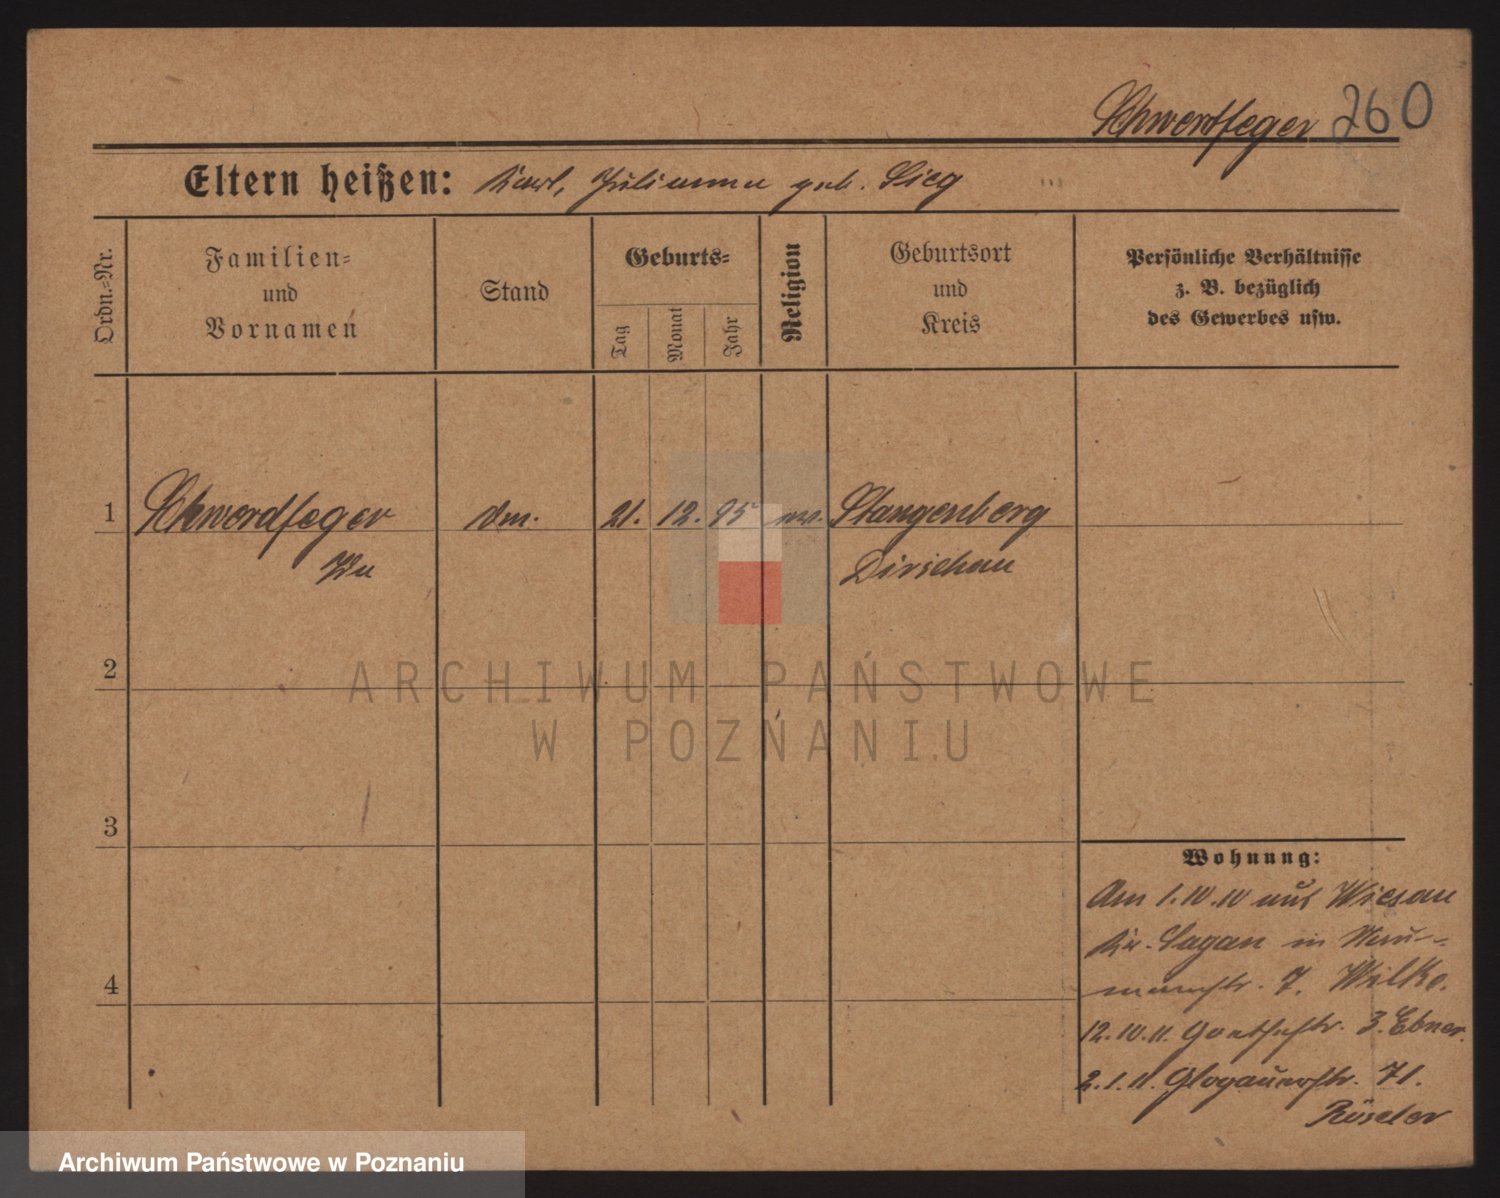 Schwertfeger 260
Eltern heißen: Karl, Julianna geb. Sieg
Ordn.=Nr.
Familien=
und
Vornamen
Stand
Geburts=
Tag
Monat
Jahr
Religion
Geburtsort
und
Kreis
Persönliche Verhältnisse
z. B. bezüglich
des Gewerbes usw.
1 Schwerdfeger 21. 12. 95 Stangenberg
Dirschau
2
3
4
Wohnung:
Am 1.10.10 aus Wiesau
Kr. Sagan in Neu-
str. 7. Wilke.
12.10.11. Goethestr. 3. Ebner.
2.1.11. Glogauerstr. 71.
Röseler
ARCHIWUM PAŃSTWOWE
W POZNANIU
Archiwum Państwowe w Poznaniu